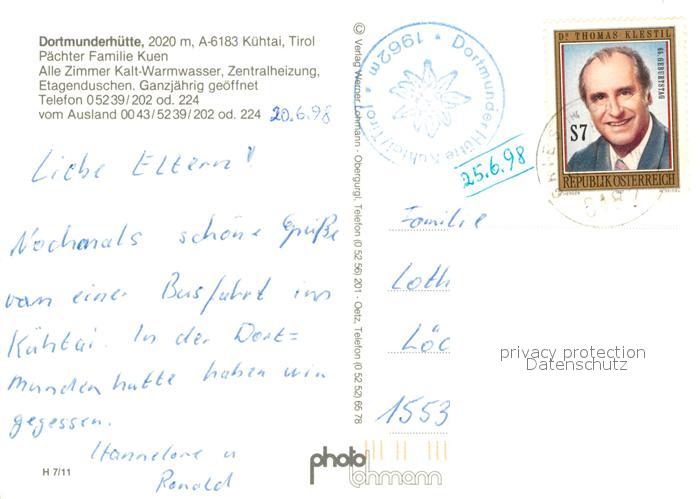 Dortmunderhütte, 2020 m, A-6183 Kühtai, Tirol
Pächter Familie Kuen
Alle Zimmer Kalt-Warmwasser, Zentralheizung,
Etagenduschen. Ganzjährig geöffnet
Telefon 0 52 39 / 202 od. 224
vom Ausland 00 43 / 52 39 / 202 od. 224
20.6.98
Liebe Eltern!
Nochmals schöne Grüße
von einer Busfahrt ins
Kühtai. In der Dort=
munderhütte haben wir
gegessen.
Hannelore u
Ronald
H 7/11
© Verlag Werner Lohmann - Obergurgl, Telefon (0 52 56) 201 - Oetz, Telefon (0 52 52) 65 78
photo
lohmann
* Dortmunder Hütte Kühtai/Tirol * 1962m
25.6.98
Dr. THOMAS KLESTIL
65. GEBURTSTAG
S7
REPUBLIK ÖSTERREICH
Familie
Loth
1553
privacy protection
Datenschutz